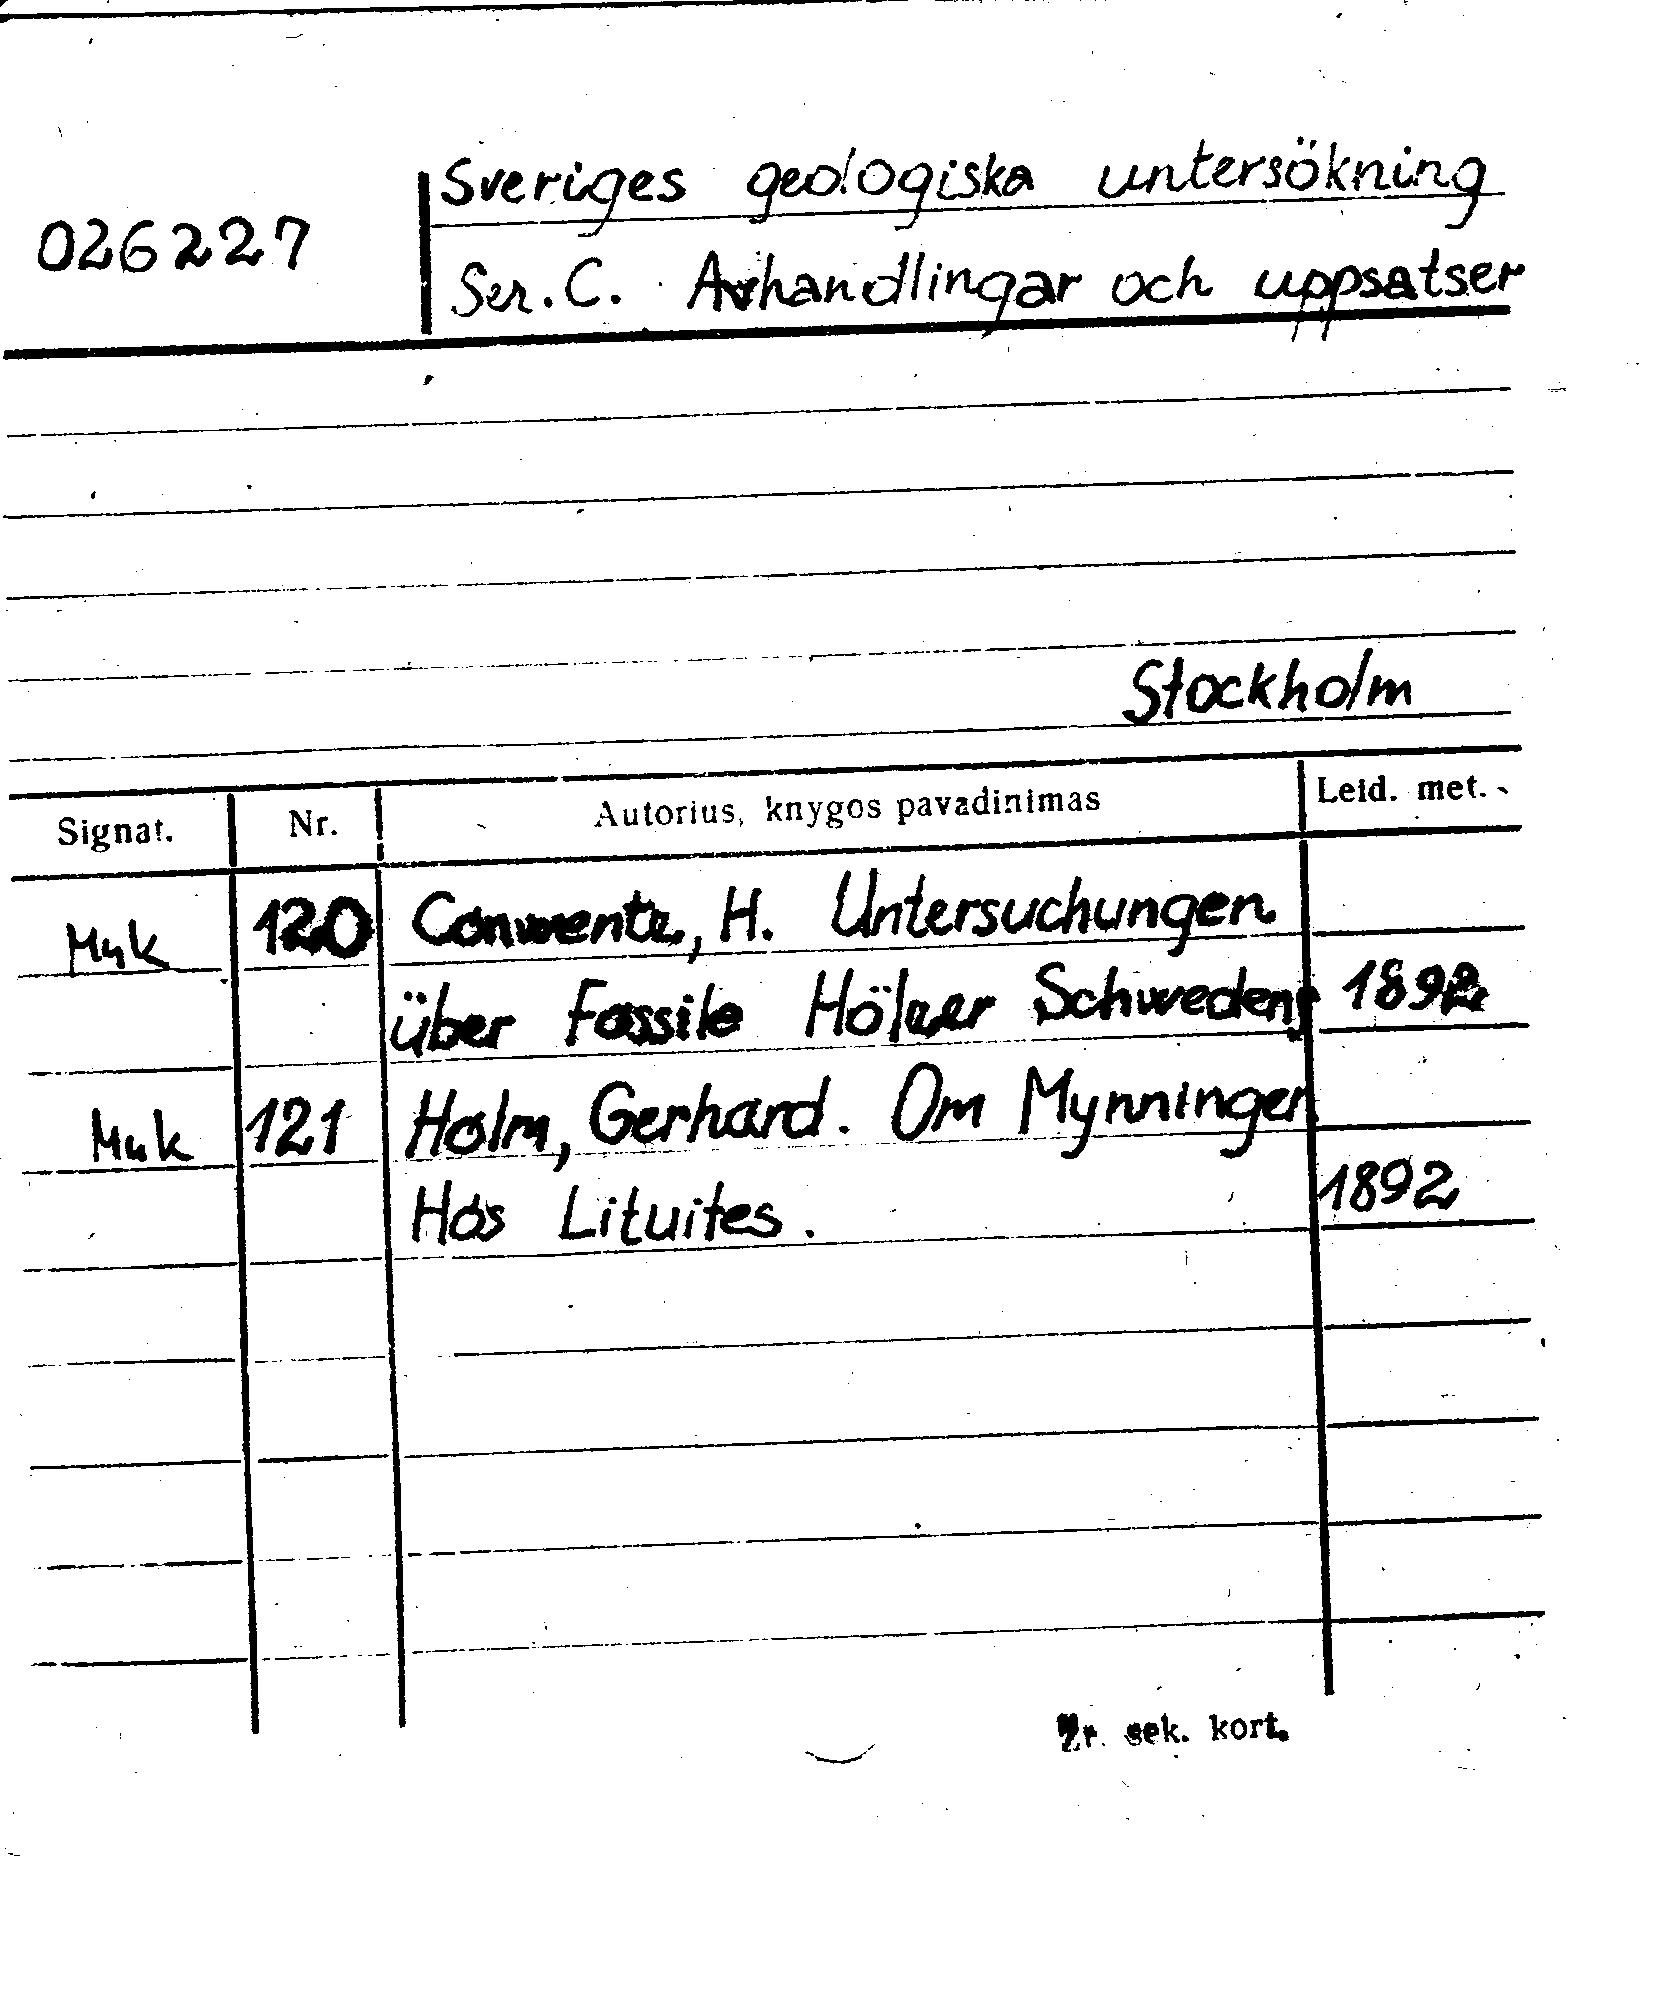 Sveriges geologiska untersökning
026227
Ser. C. Avhandlingar och uppsatser
Stockholm
Signat. Nr. Autorius, knygos pavadinimas Leid. met.
Muk 120 Conwentz, H. Untersuchungen
über Fossile Hölzer Schwedens 1892
Muk 121 Holm, Gerhard. Om Mynningen
Hos Lituites. 1892
Žr. sek. kort.